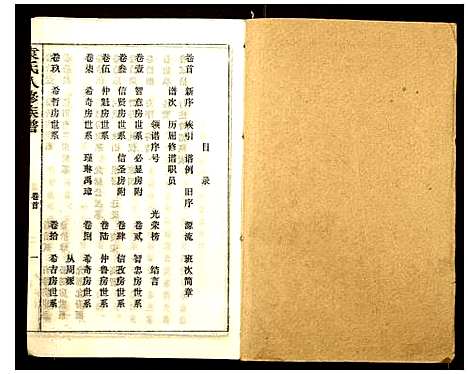 目录
卷首 新序 族引 谱例 旧序 源流 班次简章
谱次 历届修谱职员
领谱序号 光荣榜 结言
卷壹 智意房附 必显房附 卷贰 智忠房世系
卷叁 信贤房世系 信圣房附 卷肆 信孜房世系
卷伍 仲魁房世系 卷陆 仲鲁房世系
卷柒 希奇房世系 卷捌 希奇房世系
瑾琳禹璋 从周琢
卷玖 希哲房世系 卷拾 希吉房世系
袁氏八修族谱 卷首 一